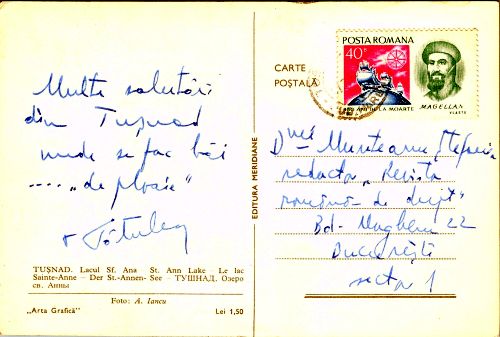 Multe salutări
din Tușnad
unde se fac băi
.... „de ploaie“
TUŞNAD. Lacul Sf. Ana St. Ann Lake - Le lac
Sainte-Anne - Der St.-Annen-See - ТУШНАД. Озеро
св. Анны
Foto: A. Iancu
„Arta Grafică“ Lei 1,50
EDITURA MERIDIANE
CARTE
POŞTALĂ
POSTA ROMANA
40B
DE LA MOARTE
MAGELLAN
Munteanu
„Revista
română de drept“
Bd. Magheru 22
București
sector 1